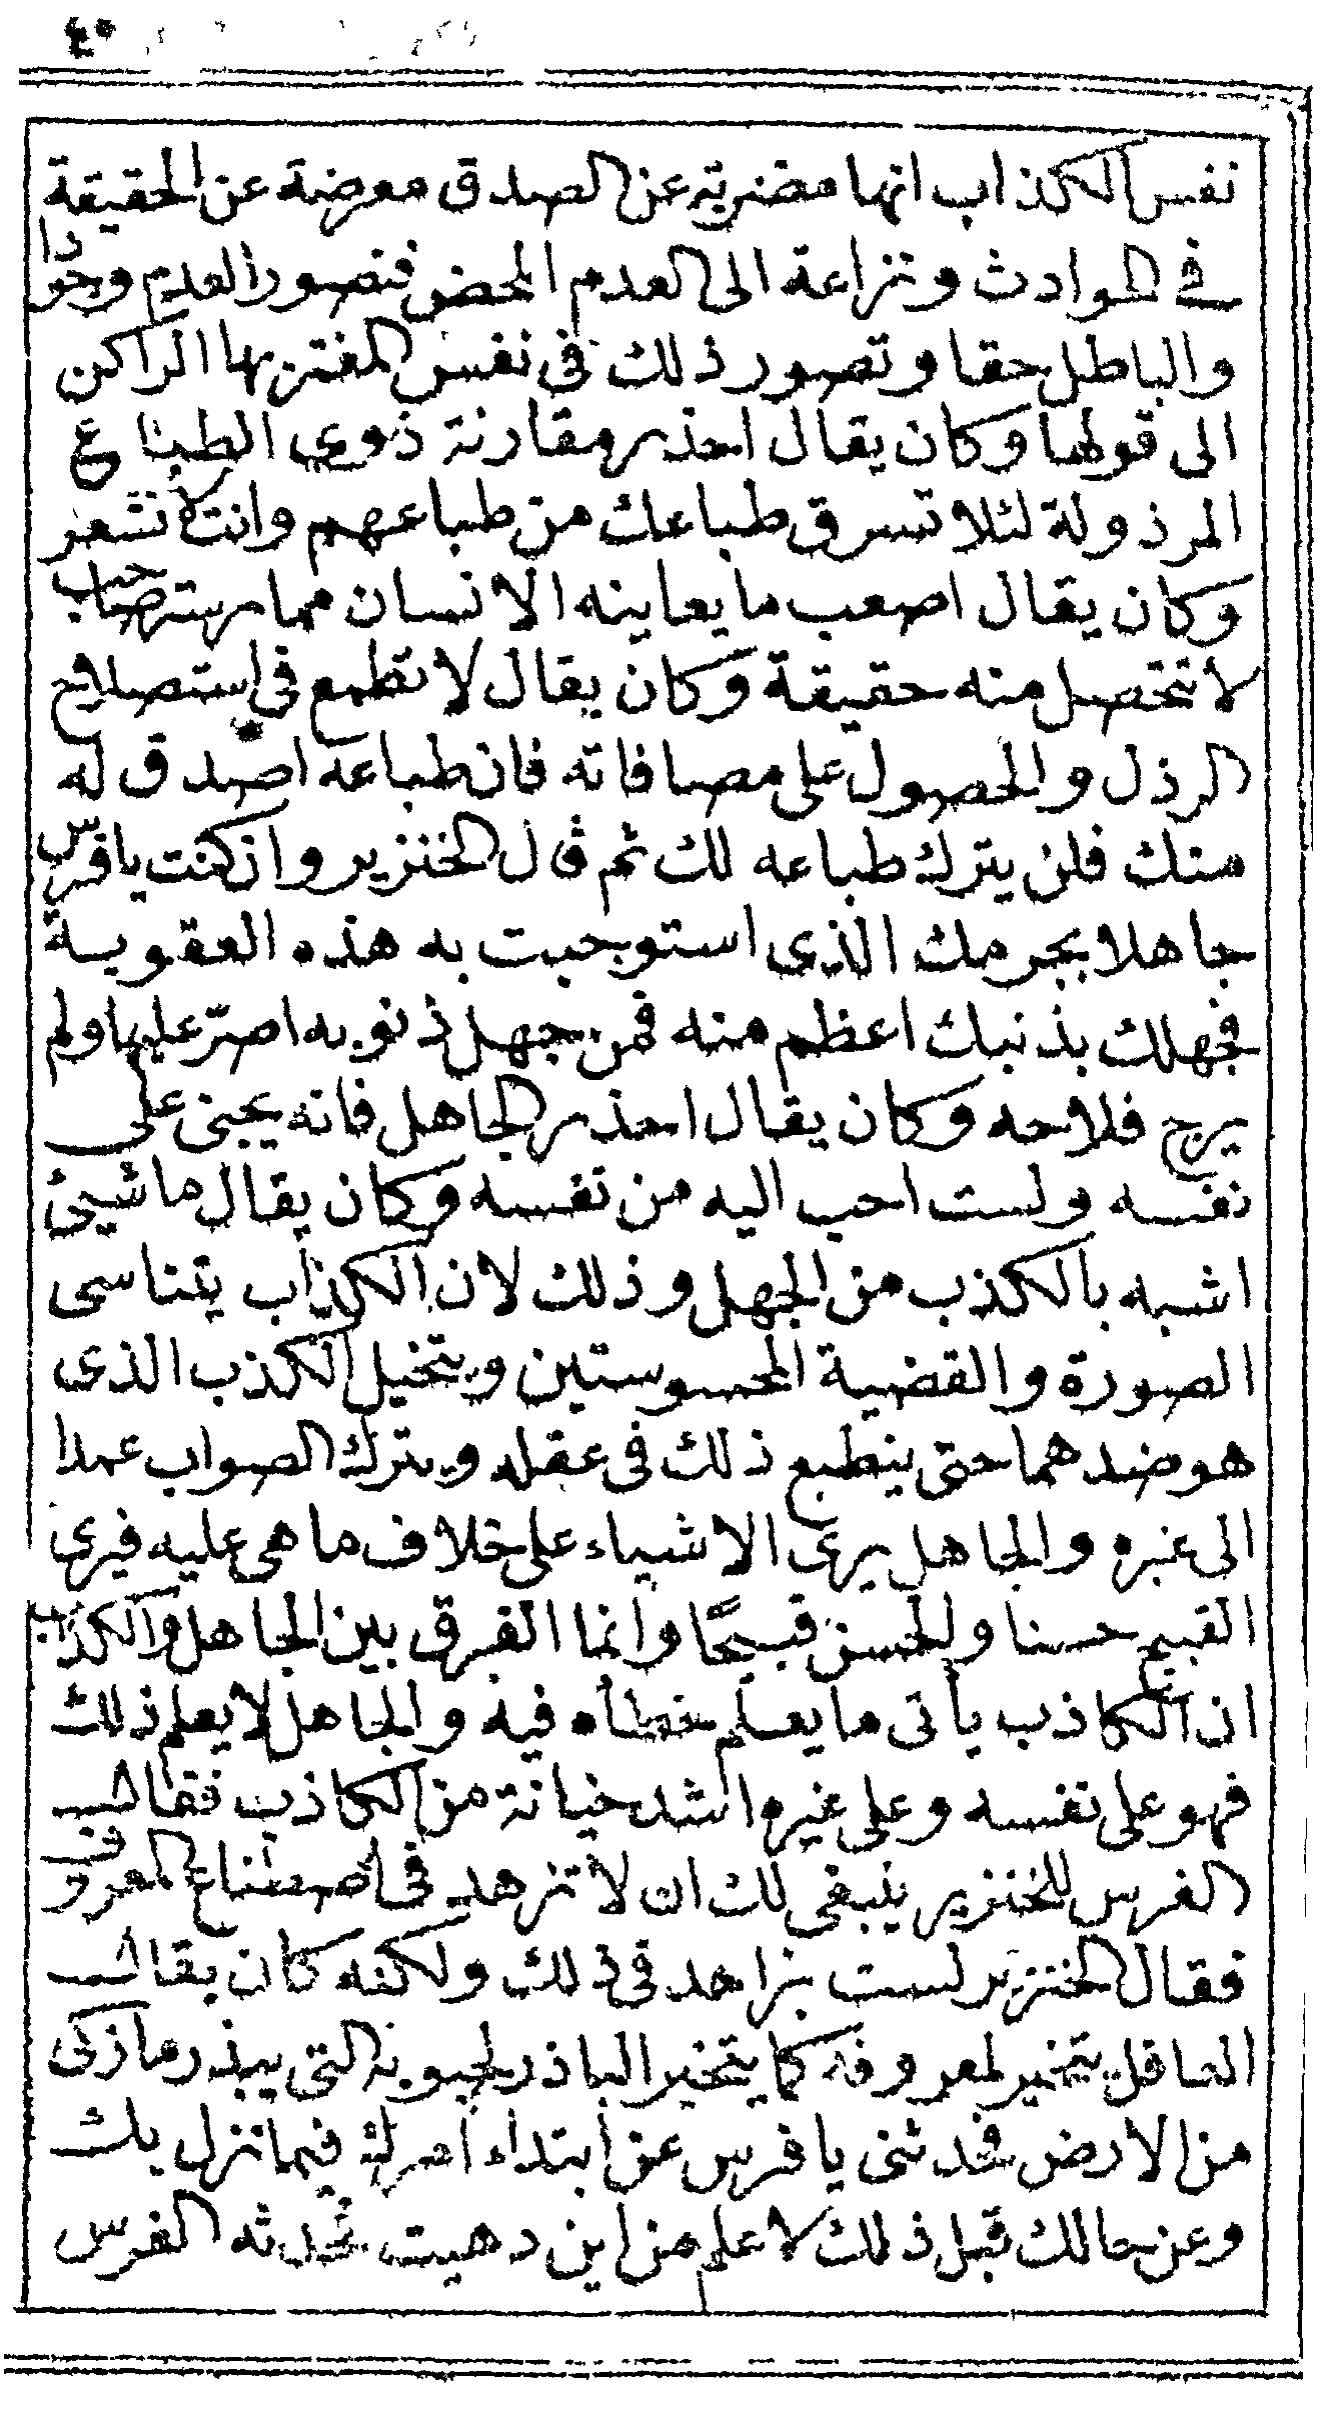 ٤٠
نفس الكذاب انها مضربة عن الصدق معرضة عن الحقيقة
في الحوادث ونزاعة الى العدم المحض فتصور العدم وجودا
والباطل حقا وتصور ذلك في نفس المغتر بها الراكن
الى قولها وكان يقال احذر مقارنة ذوى الطباع
المرذولة لئلا تسرق طباعك من طباعهم وانت لا تشعر
وكان يقال اصعب ما يعاينه الانسان ممارسة صاحب
لا تتحصل منه حقيقة وكان يقال لا تطمع في استصلاح
الرذل والحصول على مصافاته فان طباعه اصدق له
منك فلن يترك طباعه لك ثم قال الخنزير وان كنت يا فرس
جاهلا بجرمك الذى استوجبت به هذه العقوبة
فجهلك بذنبك اعظم منه فمن جهل ذنوبه اصرّ عليها ولم
يرج فلاحه وكان يقال احذر الجاهل فانه يجنى على
نفسه ولست احب اليه من نفسه وكان يقال ما شيئ
اشبه بالكذب من الجهل وذلك لان الكذاب يتناسى
الصورة والقضية المحسوستين ويتخيل الكذب الذى
هو ضدهما حتى ينطبع ذلك فى عقله ويترك الصواب عمدا
الى غيره والجاهل يرى الاشياء على خلاف ما هى عليه فيرى
القبيح حسنا والحسن قبيحًا وانما الفرق بين الجاهل والكذاب
ان الكاذب يأتى ما يعلم خطأه فيه والجاهل لا يعلم ذلك
فهو على نفسه وعلى غيره اشد خيانة من الكاذب فقال
الفرس للخنزير ينبغى لك ان لا تزهد فى اصطناع المعروف
فقال الخنزير لست بزاهد فى ذلك ولكنه كان يقال
العاقل يتخير لمعروفه كما يتخير الباذر لحبوبه التى يبذر ما زكى
من الارض فحدثنى يا فرس عن ابتداء امرك فيما نزل بك
وعن حالك قبل ذلك لاعلم من اين دهيت فحدثه الفرس